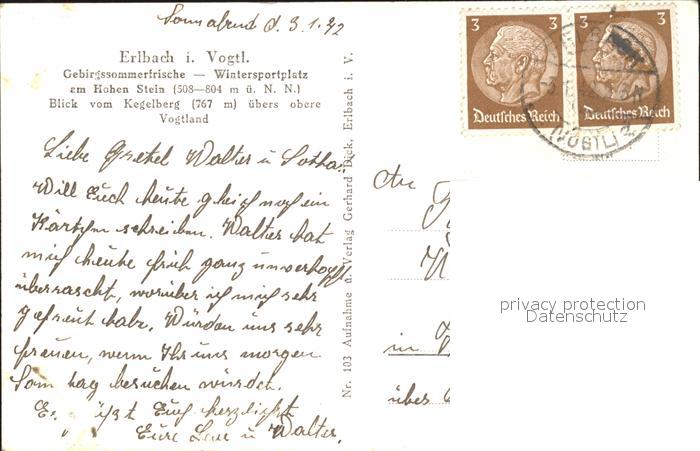 Sonnabend d. 3.1.42
Erlbach i. Vogtl.
Gebirgssommerfrische — Wintersportplatz
am Hohen Stein (508—804 m ü. N. N.)
Blick vom Kegelberg (767 m) übers obere
Vogtland
Liebe Gretel Walter u Lothar.
Will Euch heute gleich noch ein
Kärtchen schreiben. Walter hat
mich heute früh ganz unverhofft
überrascht, worüber ich mich sehr
gefreut habe. Würden uns sehr
freuen, wenn Ihr uns morgen
Sonntag besuchen würdet.
Es grüßt Euch herzlichst
Eure u Walter.
Nr. 103 Aufnahme u. Verlag Gerhard Dick, Erlbach i. V.
3 3
Deutsches Reich
3 3
Deutsches Reich
(VOGTL)
An
in
über
privacy protection
Datenschutz